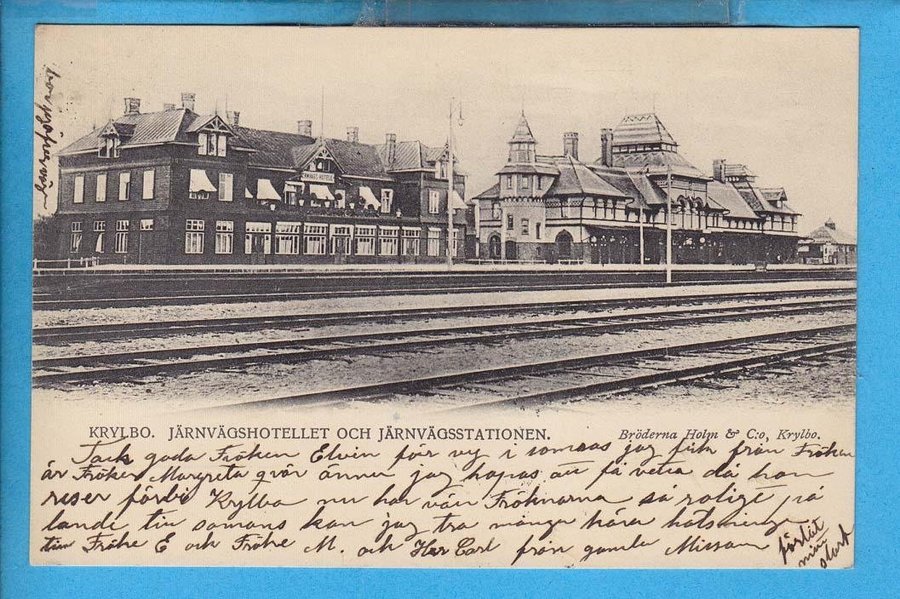 JÄRNVÄGS-HOTELL
KRYLBO. JÄRNVÄGSHOTELLET OCH JÄRNVÄGSSTATIONEN.
Bröderna Holm & C:o, Krylbo.
Tack goda Fröken Elvin för vy i somras jag fik från Fröken
är Fröken Margreta qvar ännu jag hopas att få veta då hon
reser förbi Krylbo nu har väl Fröknarna så roligt på
landet til samans kan jag tro många kära hälsningar
till Frökn E och Frökn M. och Herr Carl från gamla
förlåt
min